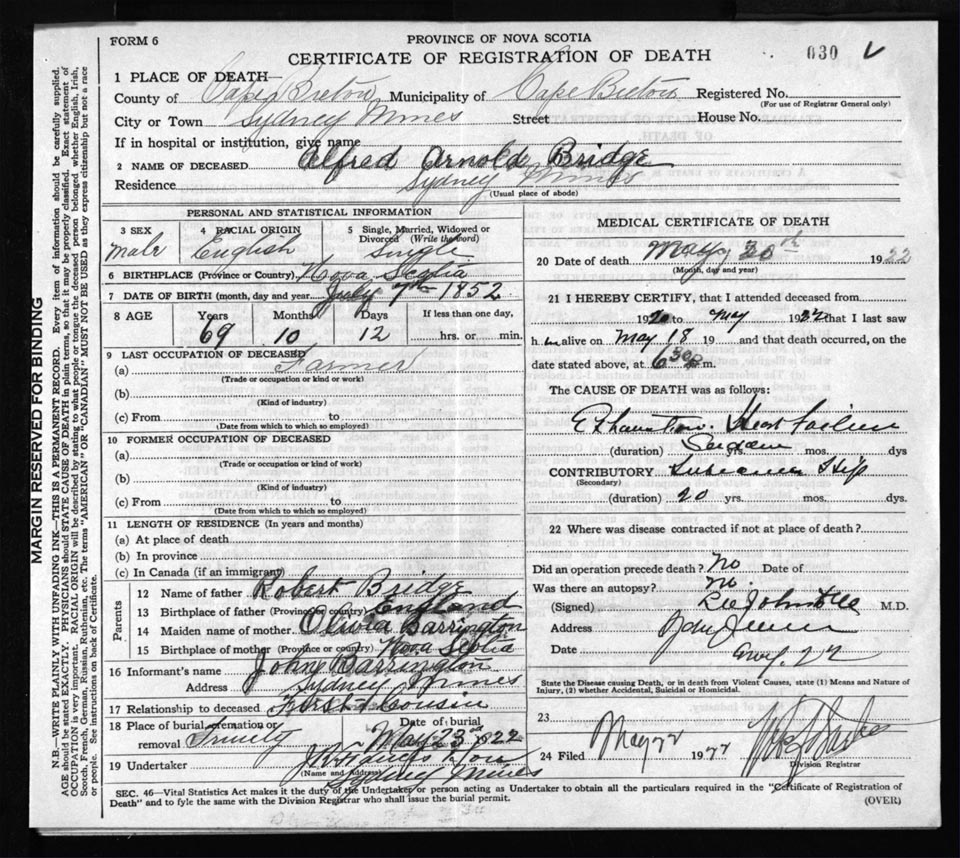 FORM 6
PROVINCE OF NOVA SCOTIA
CERTIFICATE OF REGISTRATION OF DEATH
030
1 PLACE OF DEATH—
County of Cape Breton Municipality of Cape Breton Registered No.
(For use of Registrar General only)
City or Town Sydney Mines Street House No.
If in hospital or institution, give name
2 NAME OF DECEASED Alfred Arnold Bridge
Residence Sydney Mines
(Usual place of abode)
PERSONAL AND STATISTICAL INFORMATION
3 SEX
Male
4 RACIAL ORIGIN
English
5 Single, Married, Widowed or Divorced (Write the word)
Single
6 BIRTHPLACE (Province or Country) Nova Scotia
7 DATE OF BIRTH (month, day and year) July 7th 1852
8 AGE Years Months Days If less than one day,
69 10 12 hrs. or min.
9 LAST OCCUPATION OF DECEASED
(a) Farmer
(Trade or occupation or kind or work)
(b)
(Kind of industry)
(c) From to
(Date from which to which so employed)
10 FORMER OCCUPATION OF DECEASED
(a)
(Trade or occupation or kind of work)
(b)
(Kind of industry)
(c) From to
(Date from which to which so employed)
11 LENGTH OF RESIDENCE (In years and months)
(a) At place of death
(b) In province
(c) In Canada (if an immigrant)
Parents
12 Name of father Robert Bridge
13 Birthplace of father (Province or country) England
14 Maiden name of mother Olivia Barrington
15 Birthplace of mother (Province or country) Nova Scotia
16 Informant's name John Barrington
Address Sydney Mines
17 Relationship to deceased First Cousin
18 Place of burial, cremation or removal Trinity
Date of burial
May 23rd 1922
19 Undertaker
(Name and Address)
Sydney Mines
MEDICAL CERTIFICATE OF DEATH
20 Date of death May 20th 1922
(Month, day and year)
21 I HEREBY CERTIFY, that I attended deceased from
1920 to May 1922 that I last saw
h alive on May 18 19 and that death occurred, on the
date stated above, at 6 30 p.m.
The CAUSE OF DEATH was as follows:
Exhaustion. Heart Failure
(duration) yrs. mos. dys
CONTRIBUTORY Hip
(Secondary)
(duration) 20 yrs. mos. dys.
22 Where was disease contracted if not at place of death?
Did an operation precede death? No Date of
Was there an autopsy? No.
(Signed) M.D.
Address
Date
State the Disease causing Death, or in death from Violent Causes, state (1) Means and Nature of
Injury, (2) whether Accidental, Suicidal or Homicidal.
23
24 Filed May 22 1922
Division Registrar
SEC. 46—Vital Statistics Act makes it the duty of the Undertaker or person acting as Undertaker to obtain all the particulars required in the "Certificate of Registration of
Death" and to fyle the same with the Division Registrar who shall issue the burial permit.
(OVER)
MARGIN RESERVED FOR BINDING
N.B.—WRITE PLAINLY WITH UNFADING INK—THIS IS A PERMANENT RECORD. Every item of information should be carefully supplied.
AGE should be stated EXACTLY. PHYSICIANS should STATE CAUSE OF DEATH in plain terms, so that it may be properly classified. Exact statement of
OCCUPATION is very important. RACIAL ORIGIN will be described by stating to what people or tongue the deceased person belonged whether English, Irish,
Scotch, French, German, Russian, Ruthenian, etc. The terms "AMERICAN" or "CANADIAN" MUST NOT BE USED as they express citizenship but not a race
or people. See instructions on back of Certificate.